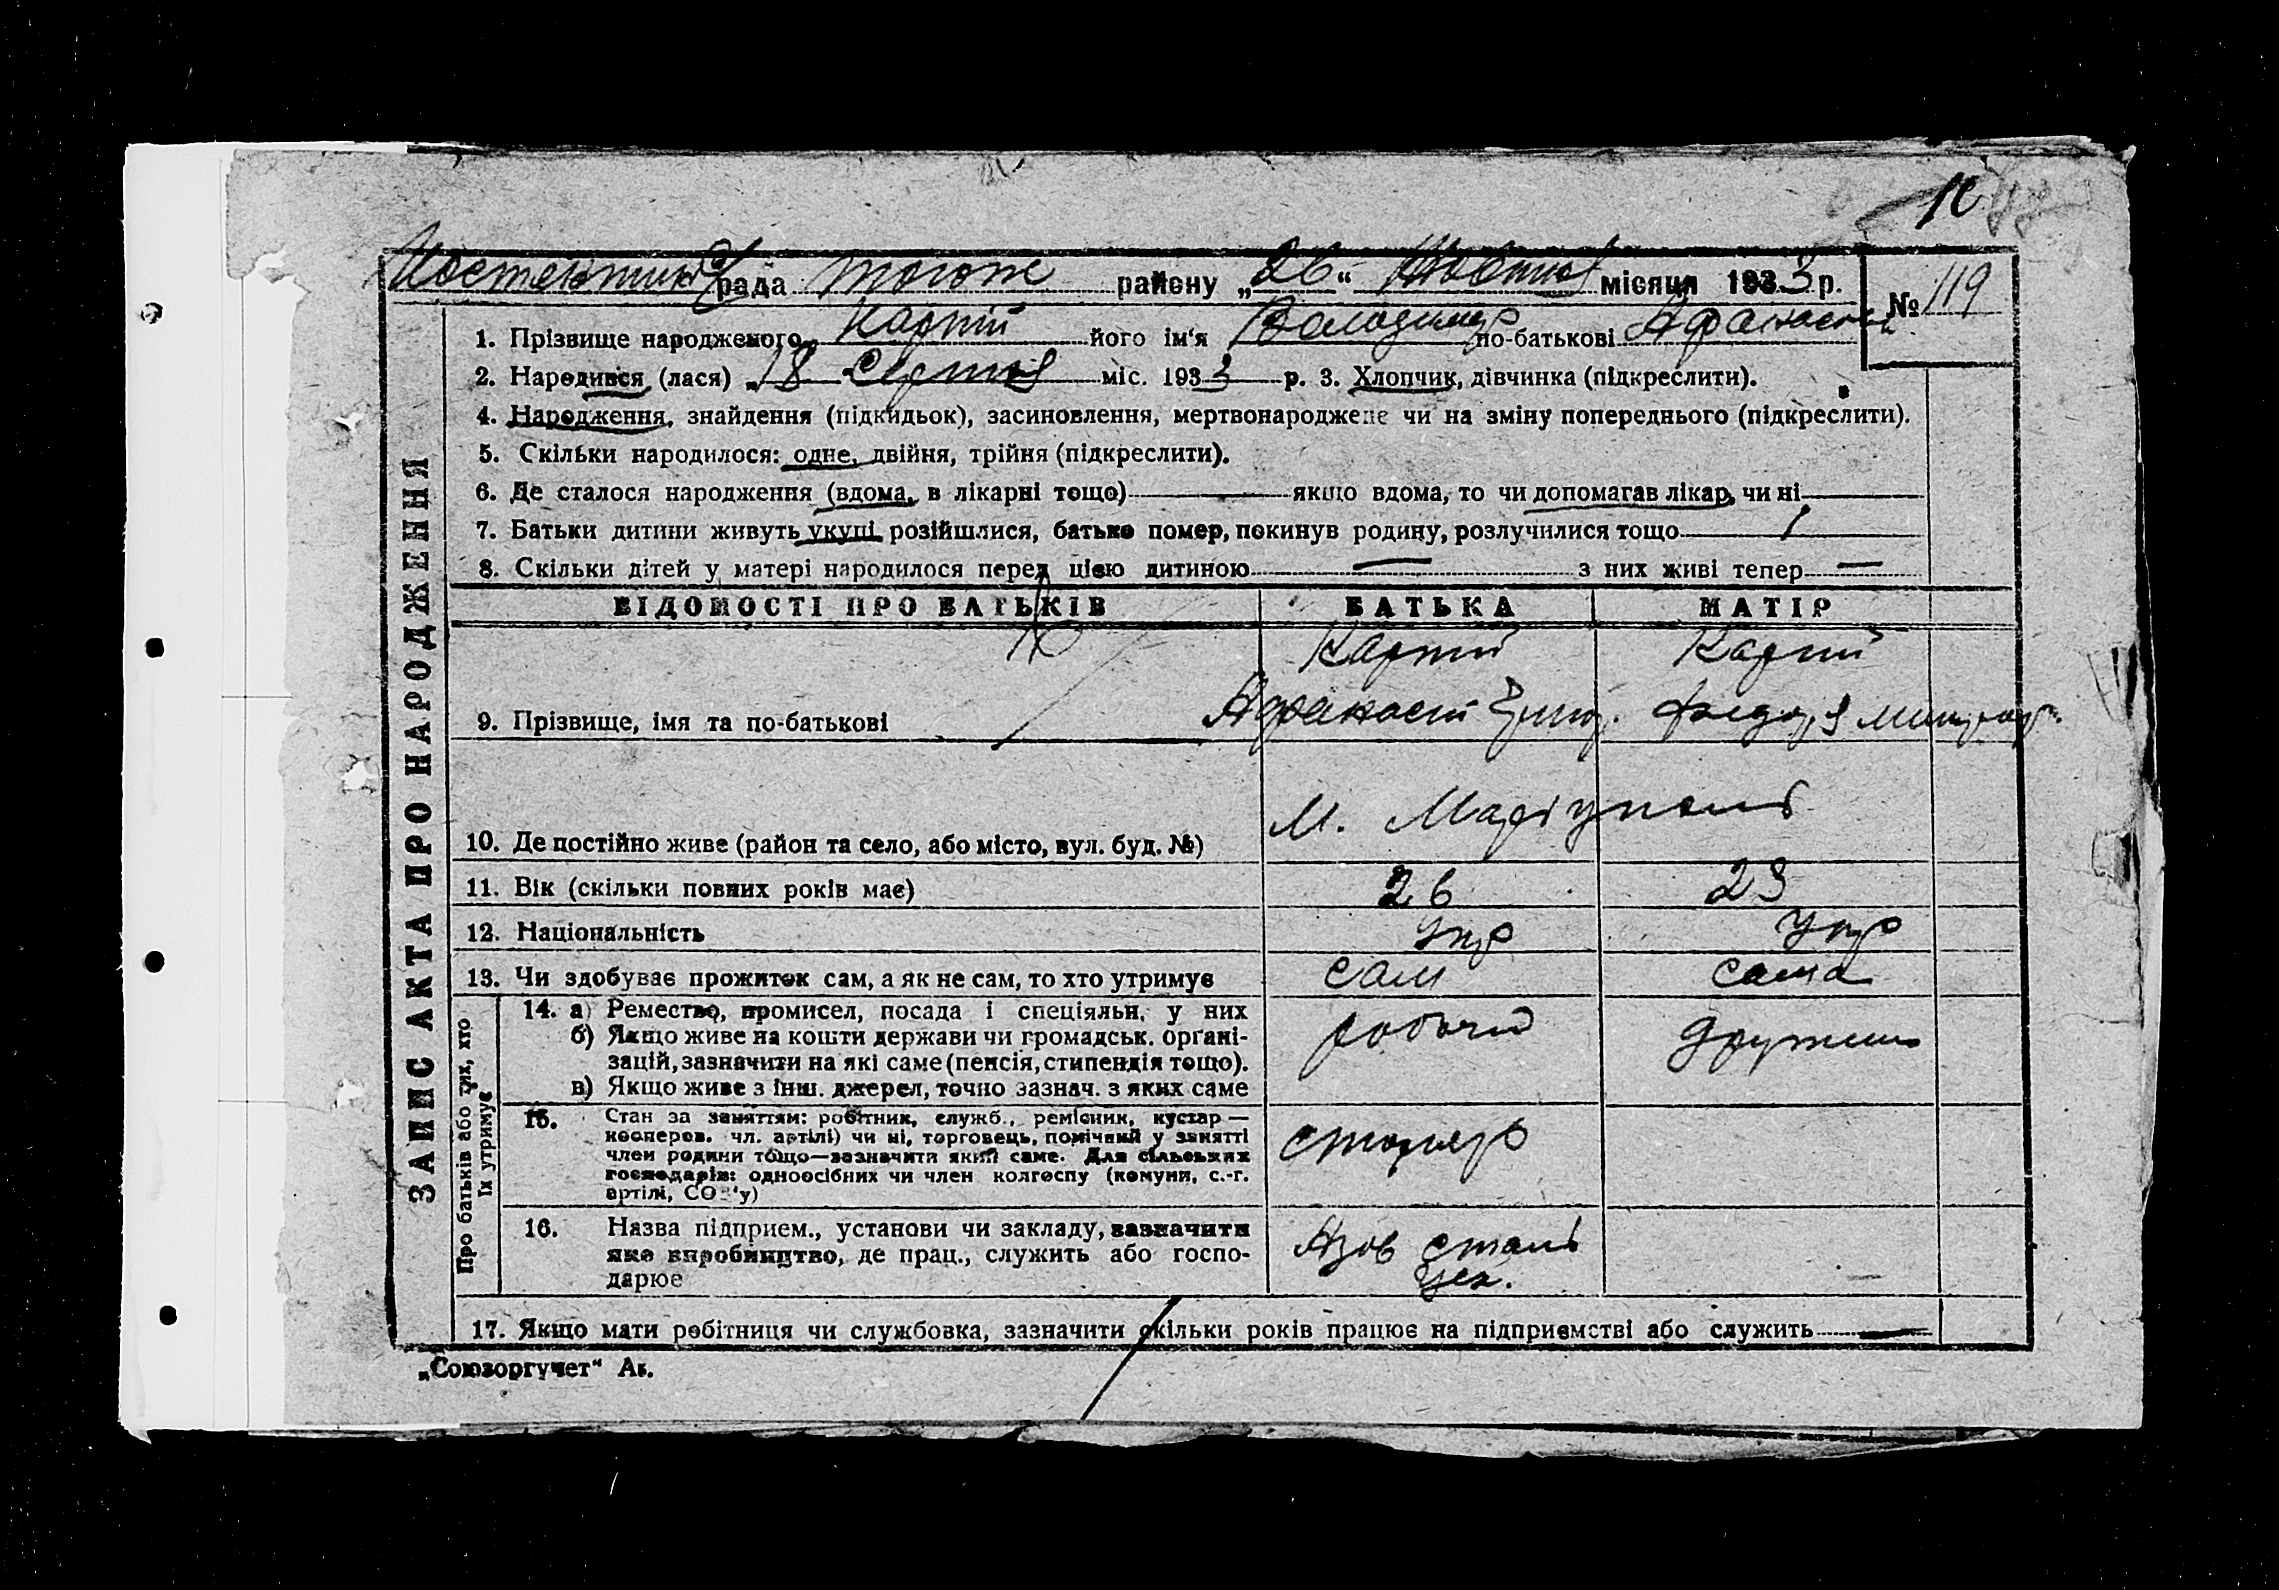 рада тогож району „26“ Жовтня місяця 1933 р.
№ 119
1. Прізвище народженого Карпій його ім'я Володимир по-батькові Афанасієв
2. Народився (лася) „18 Серпня міс. 1933 р. 3. Хлопчик, дівчинка (підкреслити).
4. Народження, знайдення (підкидьок), засиновлення, мертвонароджене чи на зміну попереднього (підкреслити).
5. Скільки народилося: одне, двійня, трійня (підкреслити).
6. Де сталося народження (вдома, в лікарні тощо) якщо вдома, то чи допомагав лікар, чи ні
7. Батьки дитини живуть укупі, розійшлися, батько помер, покинув родину, розлучилися тощо
8. Скільки дітей у матері народилося перед цією дитиною — з них живі тепер —
ВІДОМОСТІ ПРО БАТЬКІВ БАТЬКА МАТІР
Карпій Карпій
9. Прізвище, імя та по-батькові Афанасій
М. Маріуполь
10. Де постійно живе (район та село, або місто, вул. буд. №)
11. Вік (скільки повних років має) 26 23
12. Національність Укр Укр
13. Чи здобуває прожиток сам, а як не сам, то хто утримує сам сама
14. а) Ремество, промисел, посада і спеціяльн. у них
б) Якщо живе на кошти держави чи громадськ. органі-
зацій, зазначити на які саме (пенсія, стипендія тощо).
в) Якщо живе з інш. джерел, точно зазнач. з яких саме
робочий
15. Стан за заняттям: робітник, служб., ремісник, кустар —
кооперов. чл. артілі) чи ні, торговець, помічний у занятті
член родини тощо—зазначити який саме. Для сільських
господарів: одноосібних чи член колгоспу (комуни, с.-г.
артілі, СОЗ'у)
столяр
16. Назва підприєм., установи чи закладу, зазначити
яке виробництво, де прац., служить або госпо-
дарює
Азов сталь
цех.
17. Якщо мати робітниця чи службовка, зазначити скільки років працює на підприємстві або служить —
ЗАПИС АКТА ПРО НАРОДЖЕННЯ
Про батьків або тих, хто
їх утримує
„Союзоргучет“ Ак.